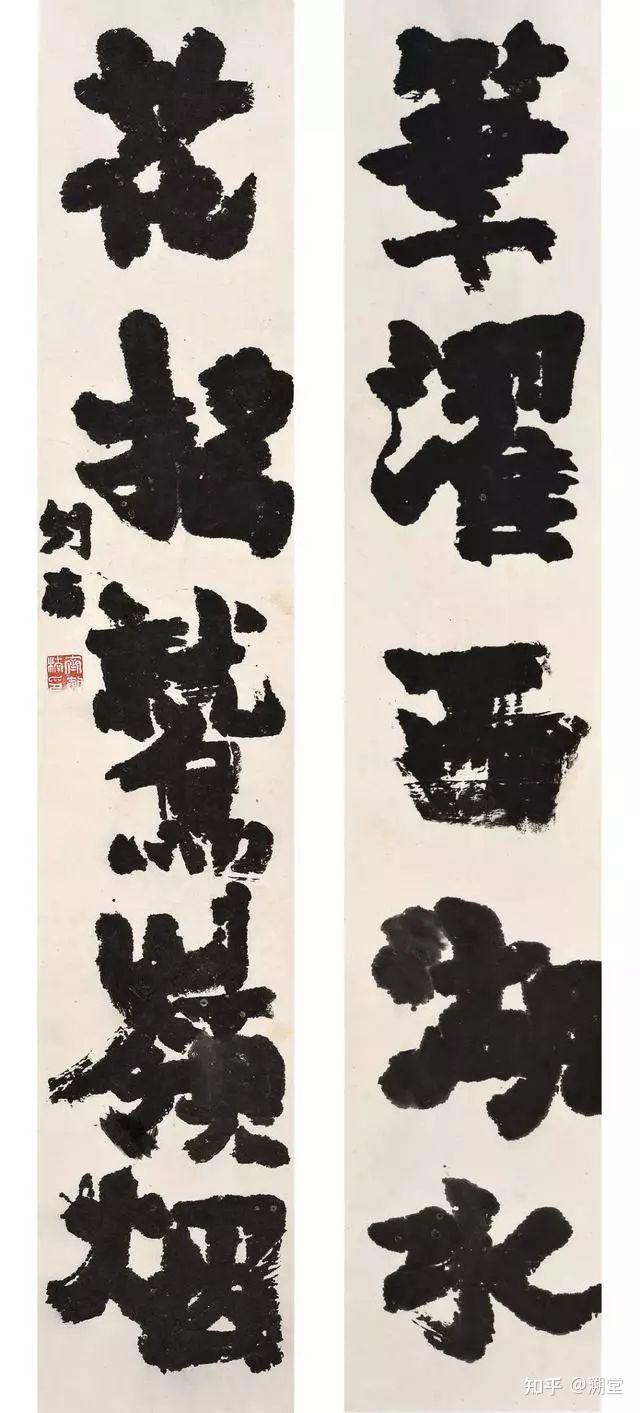 筆濯西湖水
花招鷲嶺烟
剑南
知乎 @溯堂